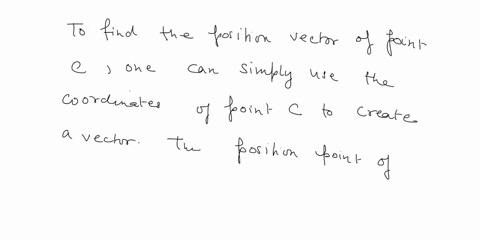 To find the position vector of point
C, one can simply use the
coordinates of point C to creates
a vector. The position point of